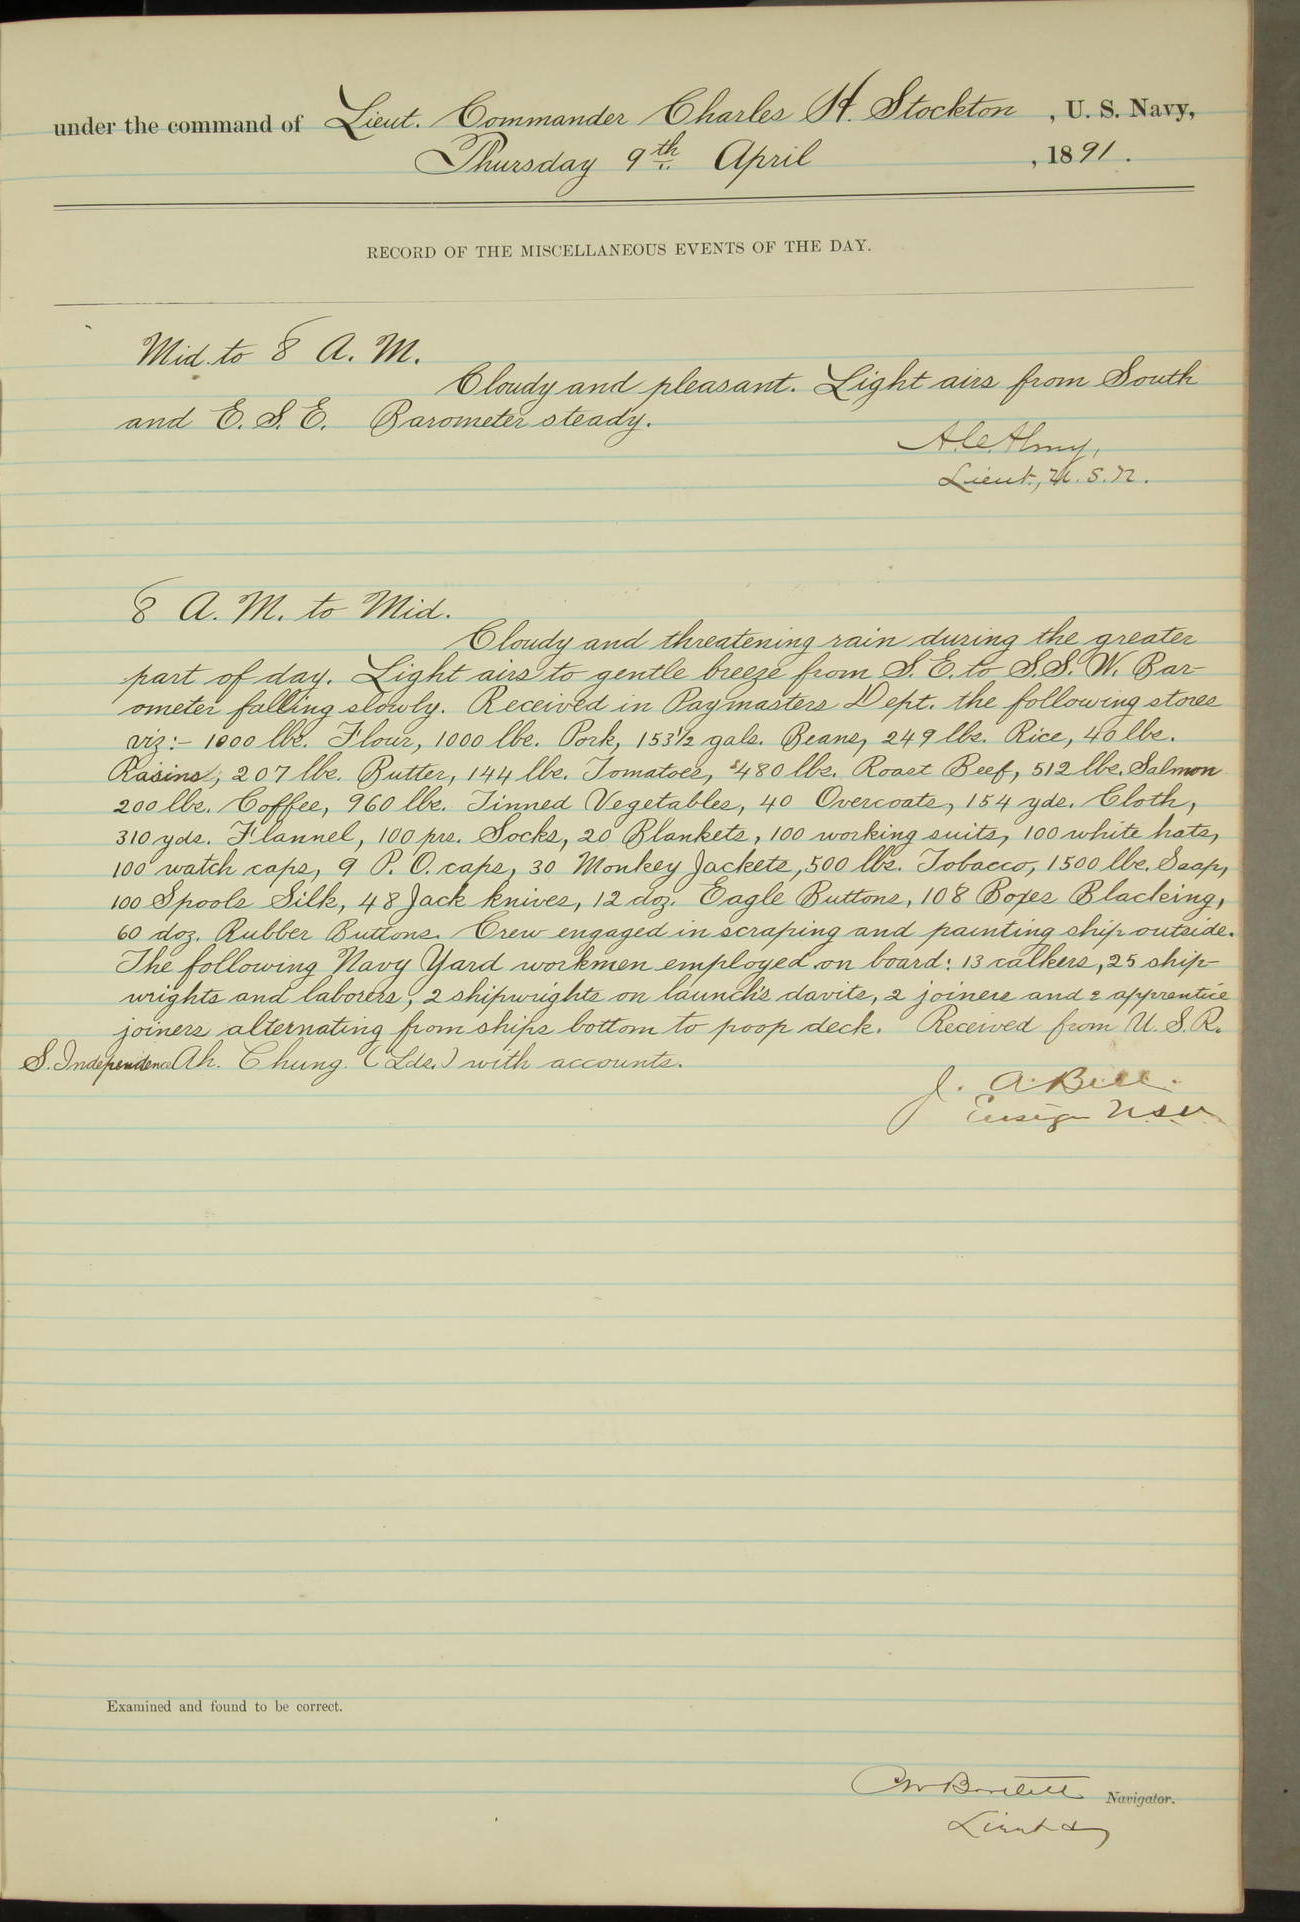 under the command of Lieut. Commander Charles H. Stockton, U. S. Navy,
Thursday 9th April, 1891.
RECORD OF THE MISCELLANEOUS EVENTS OF THE DAY.
Mid. to 8 A. M.
Cloudy and pleasant. Light airs from South
and E. S. E. Barometer steady.
A. C. Almy,
Lieut., U. S. N.
8 A. M. to Mid.
Cloudy and threatening rain during the greater
part of day. Light airs to gentle breeze from S. E. to S. S. W. Bar-
ometer falling slowly. Received in Paymasters Dept. the following stores
viz:- 1000 lbs. Flour, 1000 lbs. Pork, 153 1/2 gals. Beans, 249 lbs. Rice, 40 lbs.
Raisins, 207 lbs. Butter, 144 lbs. Tomatoes, 480 lbs. Roast Beef, 512 lbs. Salmon
200 lbs. Coffee, 960 lbs. Tinned Vegetables, 40 Overcoats, 154 yds. Cloth,
310 yds. Flannel, 100 prs. Socks, 20 Blankets, 100 working suits, 100 white hats,
100 watch caps, 9 P. O. caps, 30 Monkey Jackets, 500 lbs. Tobacco, 1500 lbs. Soap,
100 Spools Silk, 48 Jack knives, 12 doz. Eagle Buttons, 108 Boxes Blacking,
60 doz. Rubber Buttons. Crew engaged in scraping and painting ship outside.
The following Navy Yard workmen employed on board: 13 calkers, 25 ship-
wrights and laborers, 2 shipwrights on launch's davits, 2 joiners and 2 apprentice
joiners alternating from ships bottom to poop deck. Received from U. S. R.
S. Independence Ah. Chung. (Lds.) with accounts.
J. A. Bell.
Ensign USN
Examined and found to be correct.
C W Bartlett
Navigator.
Lieut &